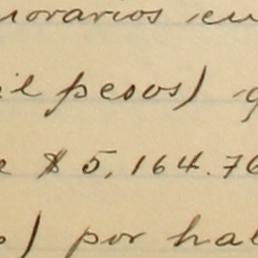 norarios en
il pesos) q
e $5,164.76
o) por hal